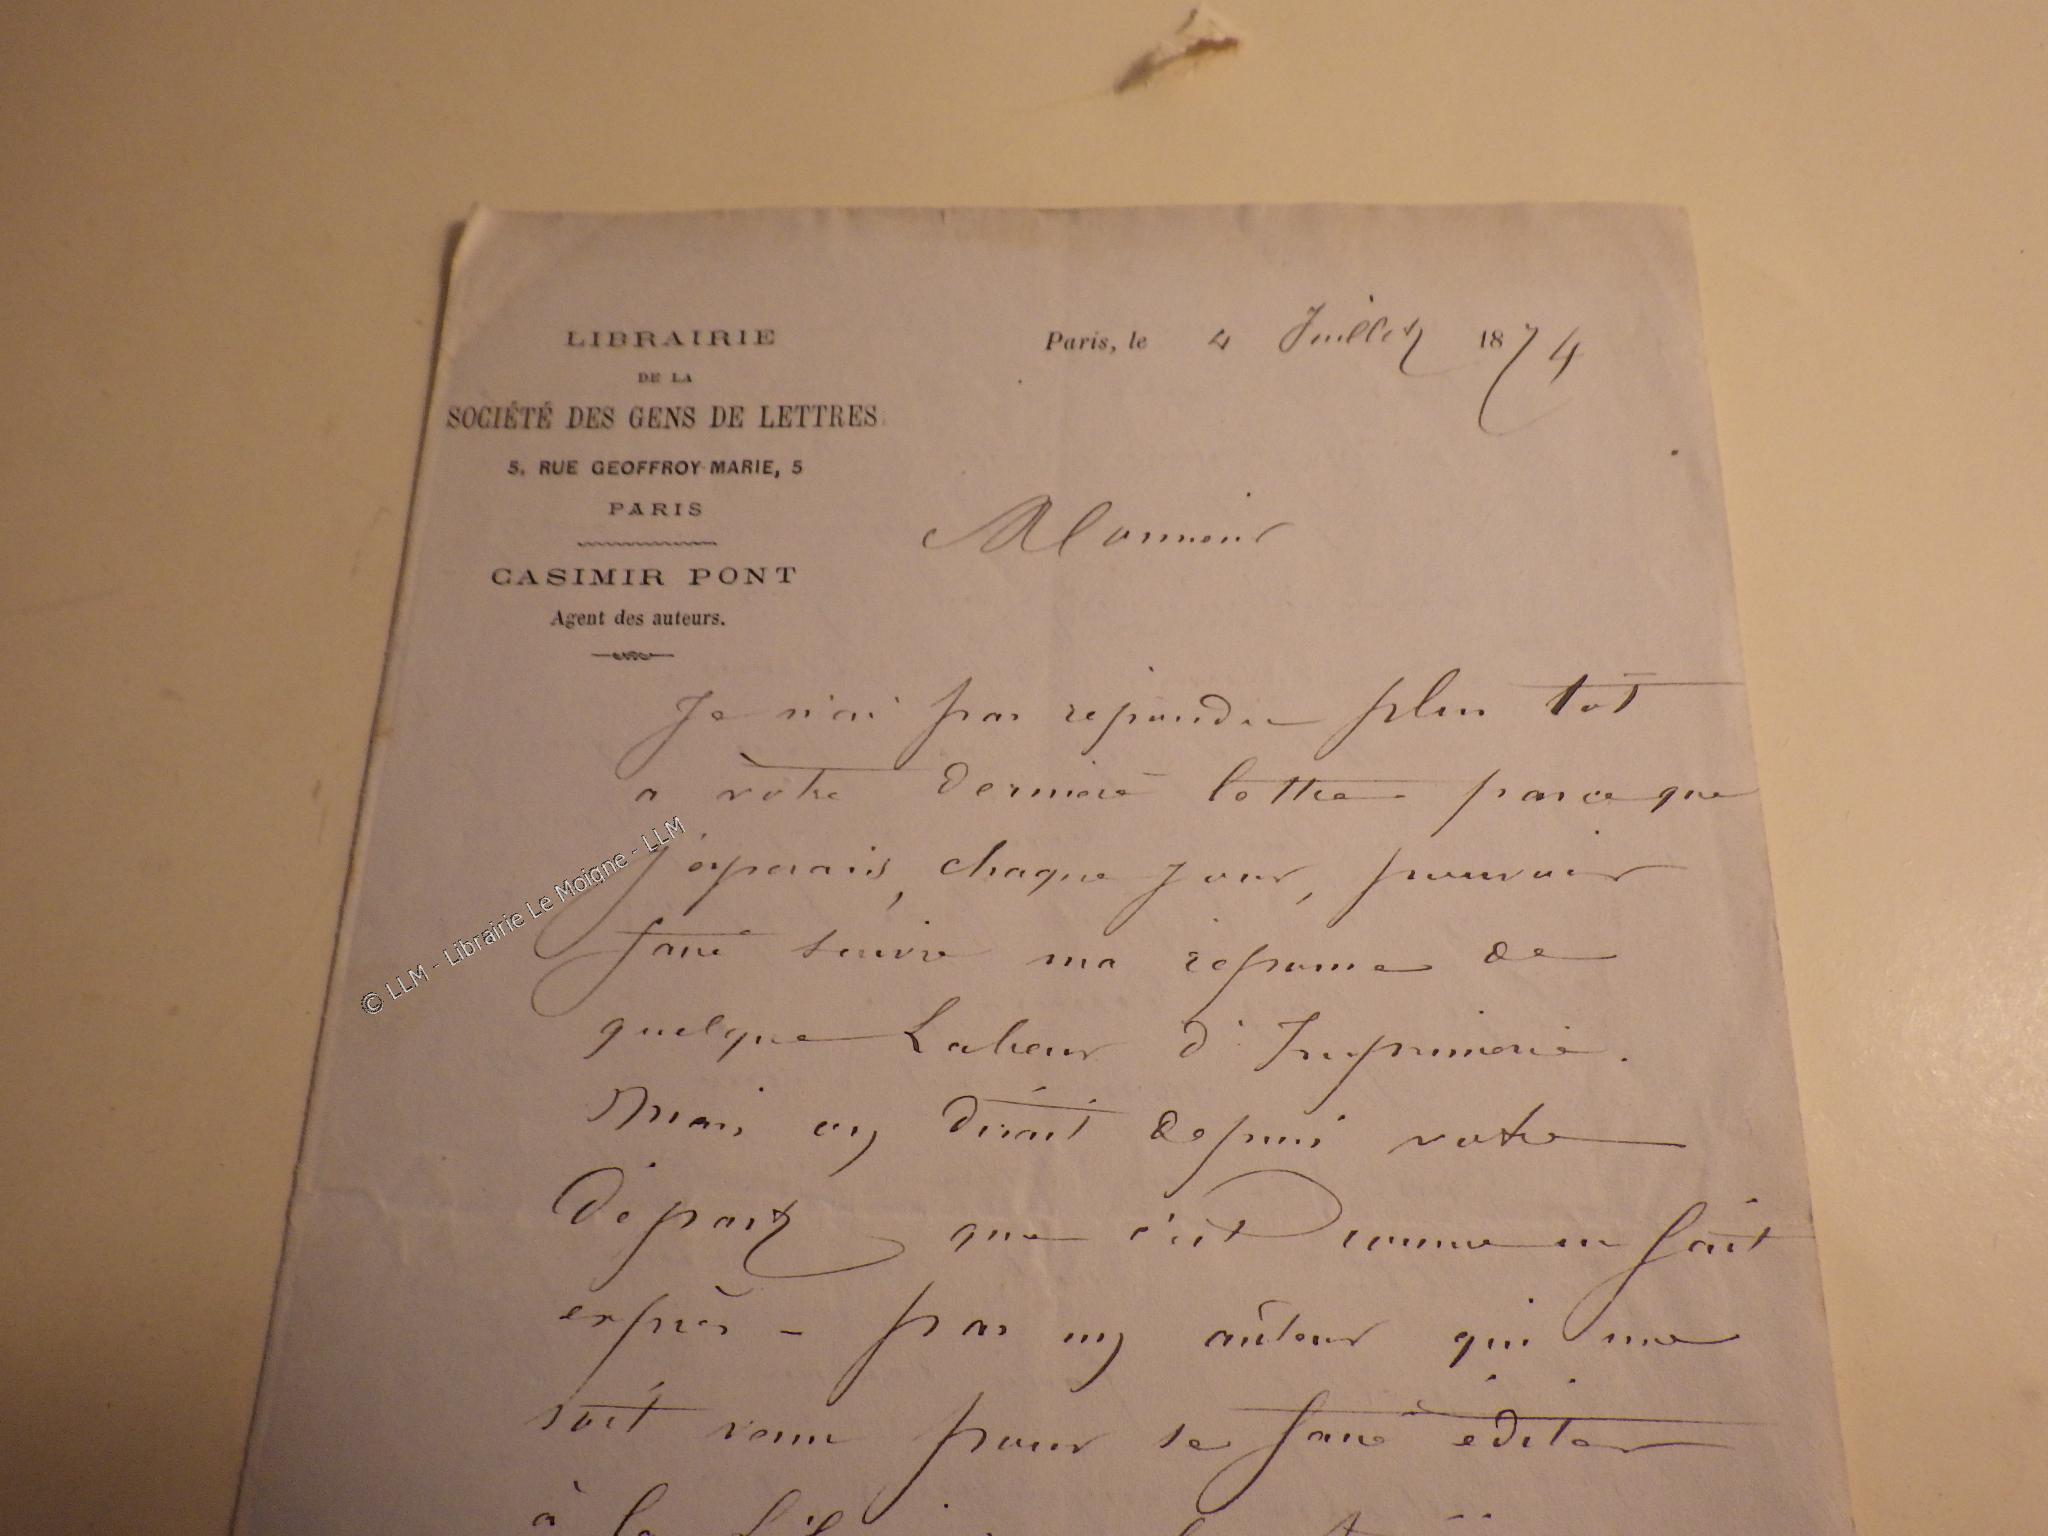 LIBRAIRIE
DE LA
SOCIÉTÉ DES GENS DE LETTRES
5, RUE GEOFFROY-MARIE, 5
PARIS
CASIMIR PONT
Agent des auteurs.
Paris, le 4 Juillet 1874
Monsieur
Je n'ai pas répondu plus tôt
a vôtre dernière lettre parce que
j'esperais, chaque jour, pouvoir
faire suivre ma réponse de
quelque Labeur d'Imprimerie.
Mais on dirait depuis votre
départ que c'est comme un fait
exprès - pas un auteur qui me
soit venu pour se faire éditer
à la
© LLM - Librairie Le Moigne - LLM